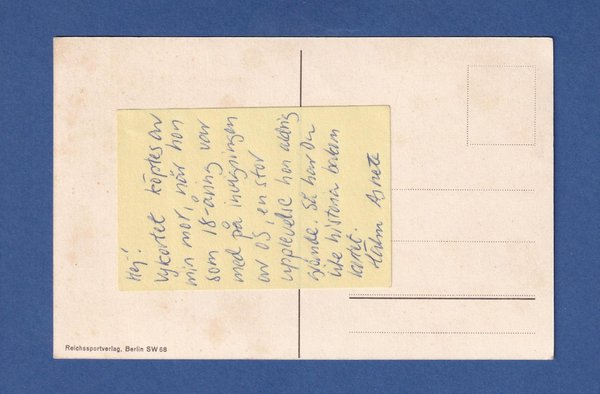 Hej!
Vykortet köptes av
min mor, när hon
som 18-åring var
med på invigningen
av OS, en stor
upplevelse hon aldrig
glömde. Så har Du
lite historia bakom
kortet.
Reichssportverlag, Berlin SW 68